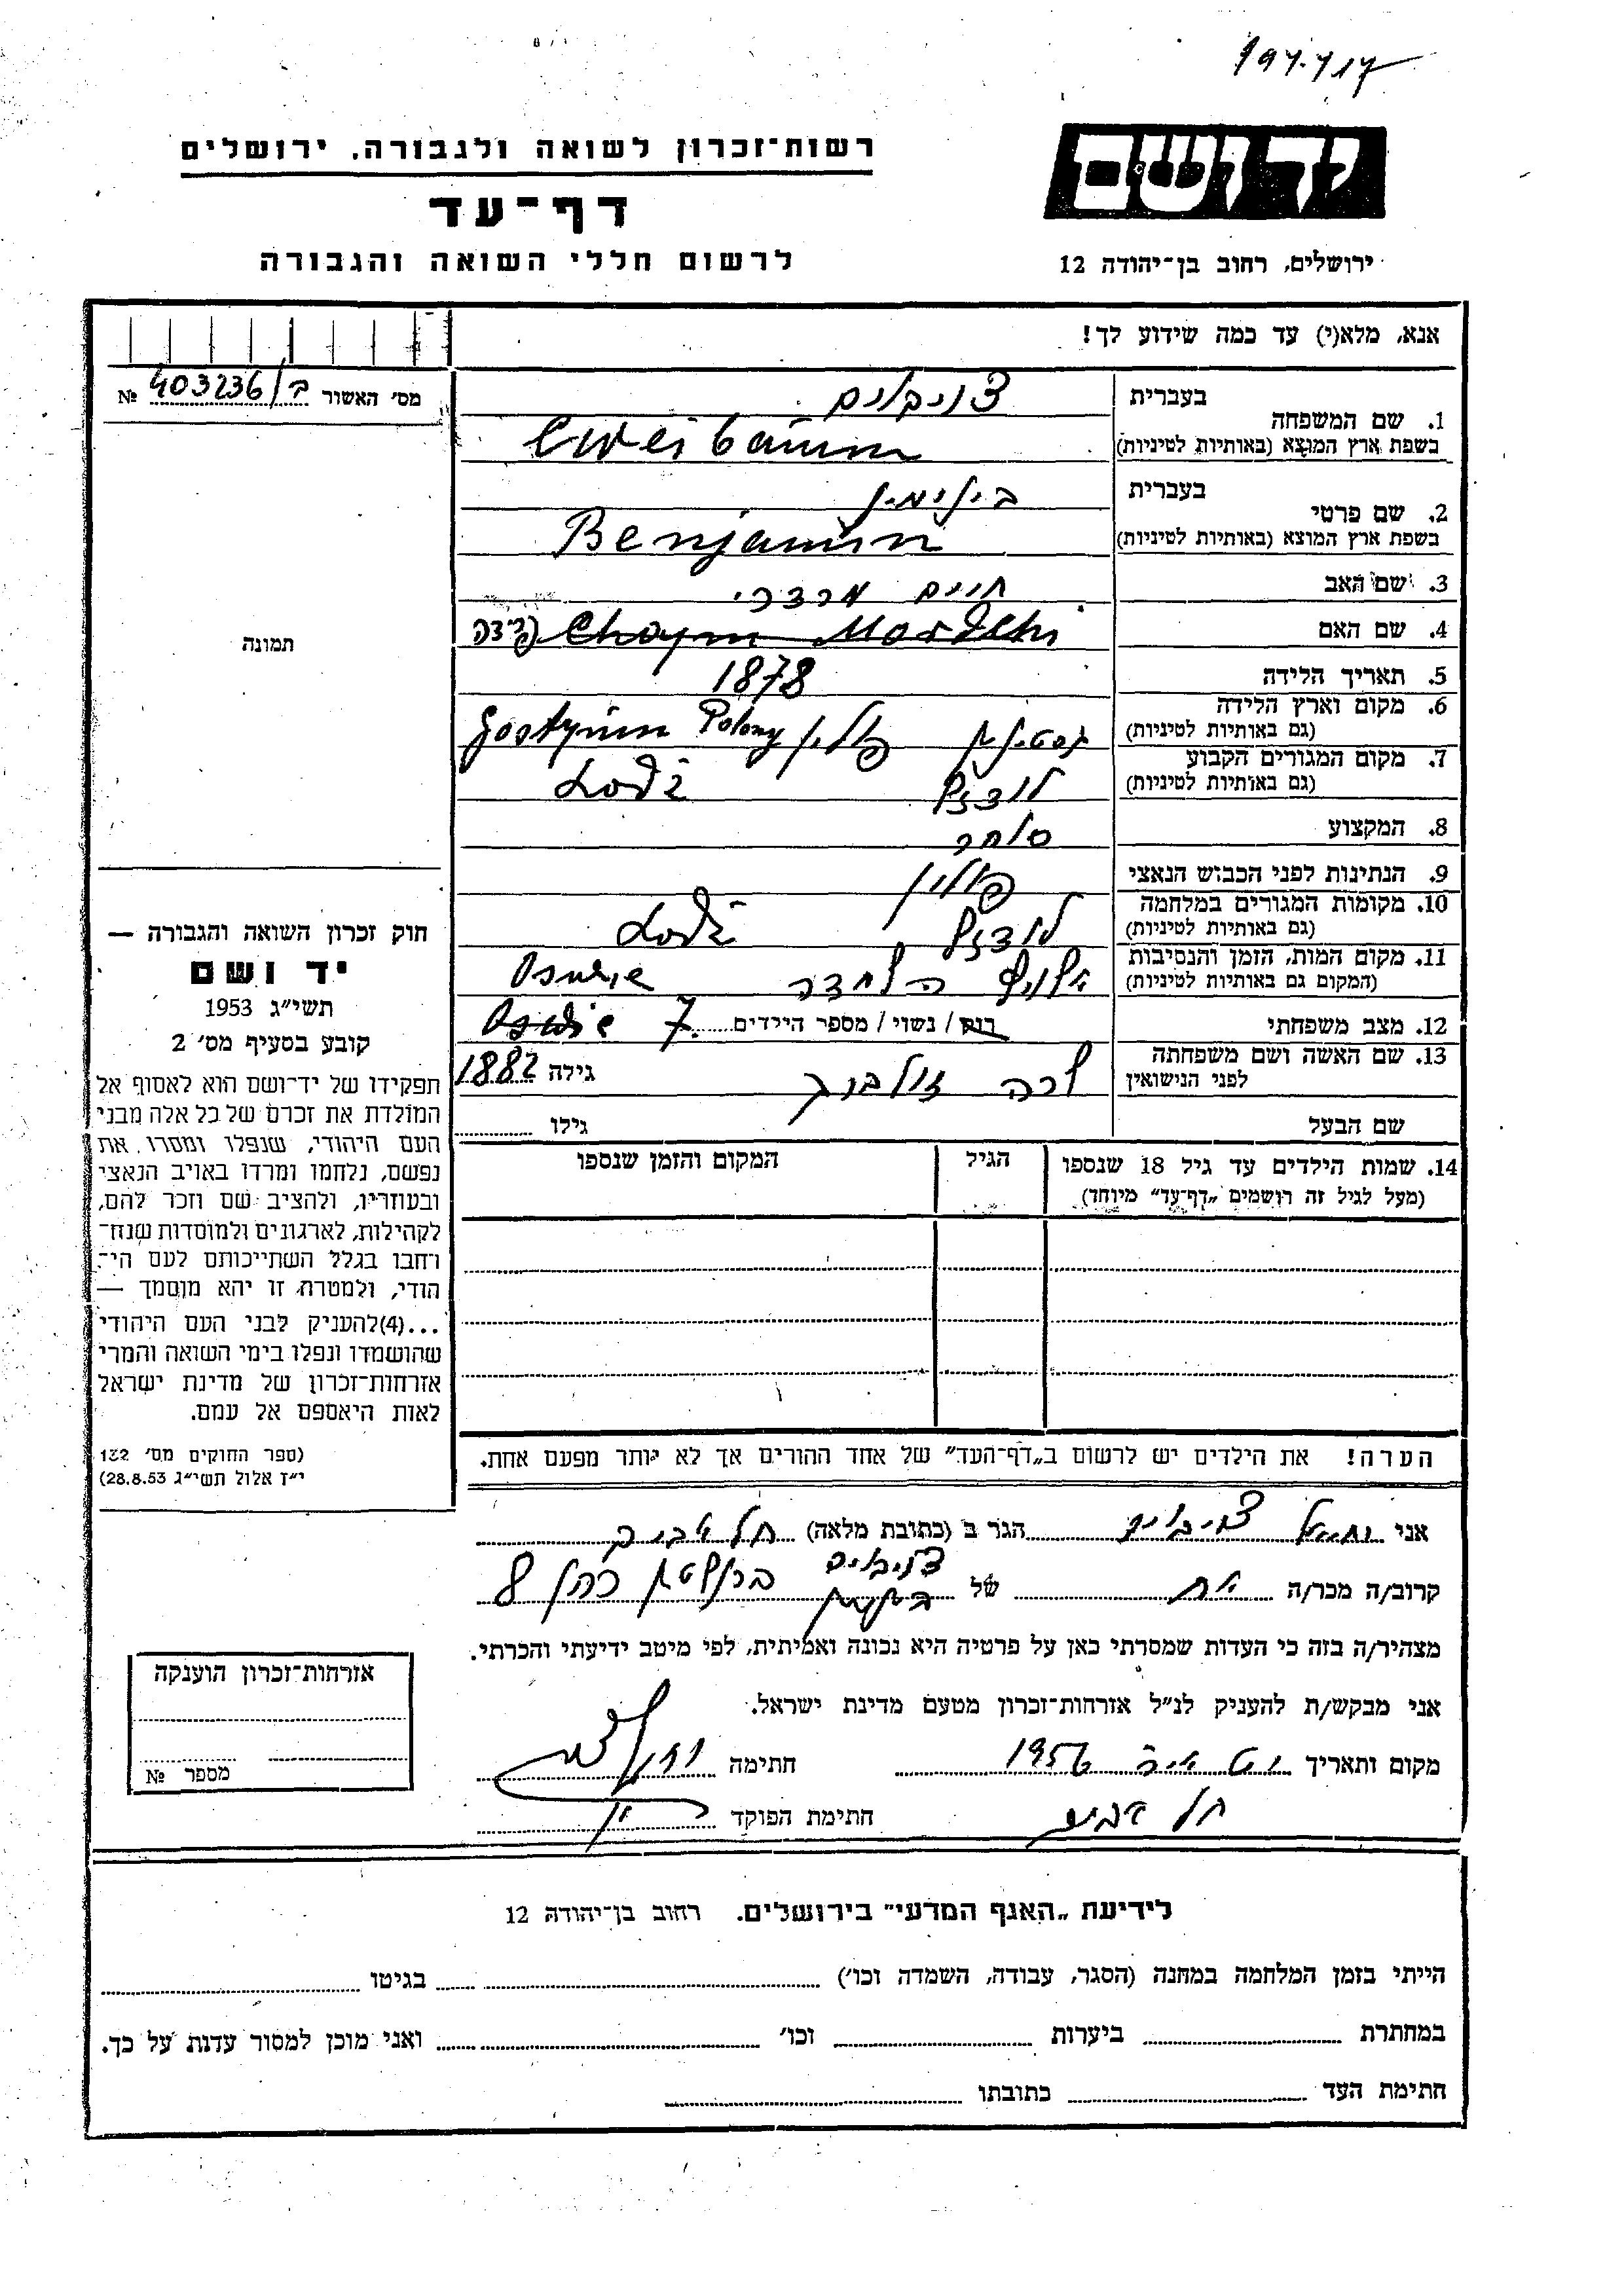 רשות־זכרון לשואה ולגבורה, ירושלים
דף־עד
לרשום חללי השואה והגבורה
יד ושם
ירושלים, רחוב בן־יהודה 12
אנא, מלא(י) עד כמה שידוע לך!
מס' האשור ב/403236 №
תמונה
1. שם המשפחה
בעברית
בשפת ארץ המוצא (באותיות לטיניות) Cweibaum
2. שם פרטי
בעברית בנימין
בשפת ארץ המוצא (באותיות לטיניות) Benjamin
3. שם האב חיים מרדכי
4. שם האם Chaym Mordchi
5. תאריך הלידה 1878
6. מקום וארץ הלידה
(גם באותיות לטיניות) גוסטינין פולין Gostynin Polony
7. מקום המגורים הקבוע
(גם באותיות לטיניות) לודז' Łodż
8. המקצוע סוחר
9. הנתינות לפני הכבוש הנאצי פולין
10. מקומות המגורים במלחמה
(גם באותיות לטיניות) לודז' Łodż
11. מקום המות, הזמן והנסיבות
(המקום גם באותיות לטיניות)
12. מצב משפחתי רוק / נשוי / מספר הילדים 7
13. שם האשה ושם משפחתה
לפני הנישואין גילה 1882
שם הבעל גילו
14. שמות הילדים עד גיל 18 שנספו
(מעל לגיל זה רושמים „דף־עד" מיוחד)
הגיל
המקום והזמן שנספו
הערה! את הילדים יש לרשום ב„דף־העד" של אחד ההורים אך לא יותר מפעם אחת.
חוק זכרון השואה והגבורה —
יד ושם
תשי"ג 1953
קובע בסעיף מס' 2
תפקידו של יד־ושם הוא לאסוף אל
המולדת את זכרם של כל אלה מבני
העם היהודי, שנפלו ומסרו את
נפשם, נלחמו ומרדו באויב הנאצי
ובעוזריו, ולהציב שם וזכר להם,
לקהילות, לארגונים ולמוסדות שנח־
רחבו בגלל השתייכותם לעם הי־
הודי, ולמטרה זו יהא מוסמך —
...(4)להעניק לבני העם היהודי
שהושמדו ונפלו בימי השואה והמרי
אזרחות־זכרון של מדינת ישראל
לאות היאספם אל עמם.
(ספר החוקים מס' 132
י"ז אלול תשי"ג 28.8.53)
אני הגר ב (כתובת מלאה) תל אביב
קרוב/ה מכר/ה של
מצהיר/ה בזה כי העדות שמסרתי כאן על פרטיה היא נכונה ואמיתית, לפי מיטב ידיעתי והכרתי.
אני מבקש/ת להעניק לנ"ל אזרחות־זכרון מטעם מדינת ישראל.
מקום ותאריך 1956 חתימה
תל אביב חתימת הפוקד
אזרחות־זכרון הוענקה
מספר №
לידיעת „האגף המדעי" בירושלים. רחוב בן־יהודה 12
הייתי בזמן המלחמה במחנה (הסגר, עבודה, השמדה וכו') בגיטו
במחתרת ביערות וכו' ואני מוכן למסור עדות על כך.
חתימת העד כתובתו